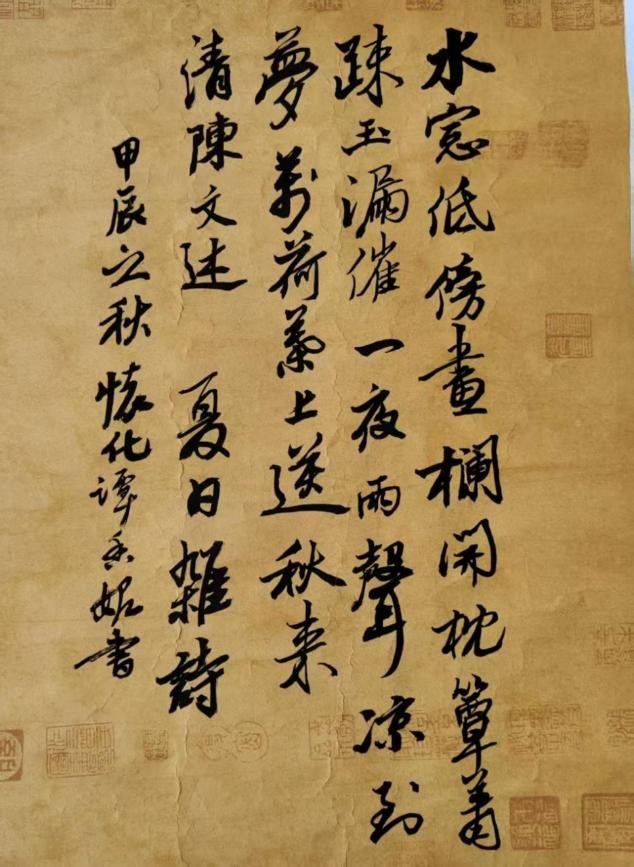 水窓低傍畫欄開枕簟蕭
踈玉漏催一夜雨聲凉到
夢萬荷葉上送秋来
清陳文述 夏日雜詩
甲辰之秋懷化譚香妮書